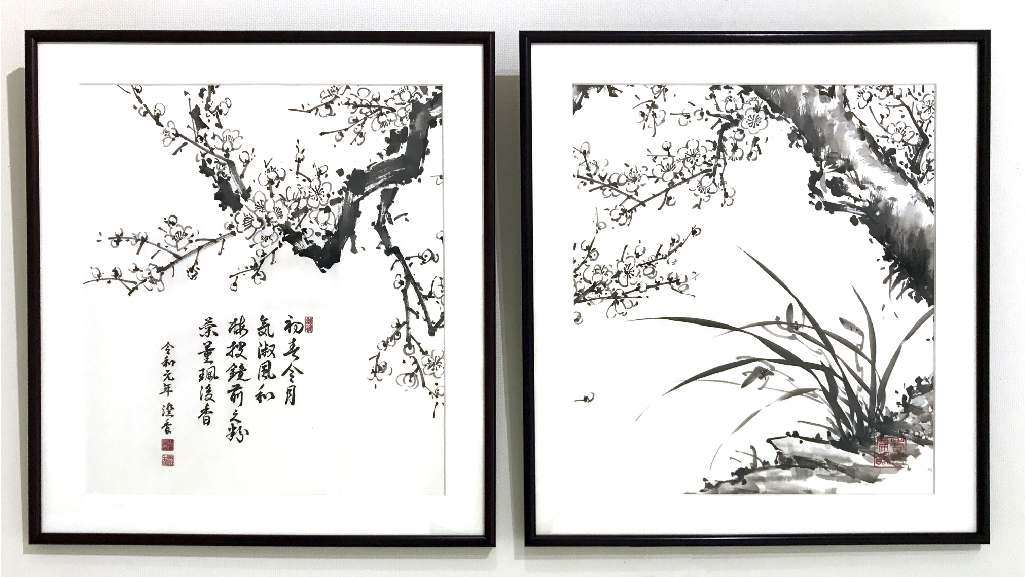 初春令月
気淑風和
梅披鏡前之粉
蘭薫珮後香
令和元年